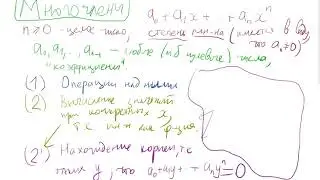 Многочлены a₀+a₁x+ +aₙxⁿ
n≥0 - целое число, степень мн-на (имеется в виду,
что aₙ≠0)
a₀,a₁, aₙ - любые (м.б. нулевые) числа,
"коэффициенты"
(1) Операции над ними
(2) Вычисление значений
при конкретных x,
т.к. мн-н как ф-ция.
(2') Нахождение корней, т.е.
таких y, что a₀+a₁y+ +aₙyⁿ=0